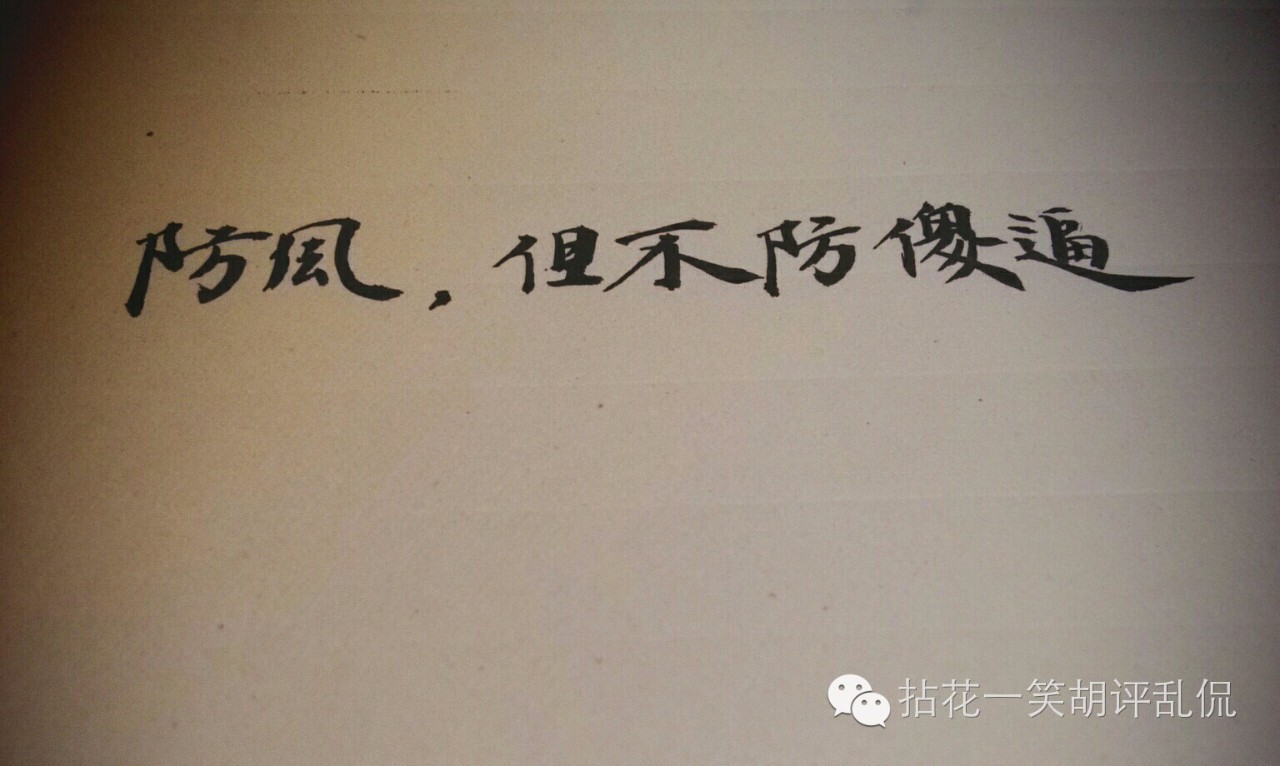 防風，但不防傻逼
拈花一笑胡评乱侃